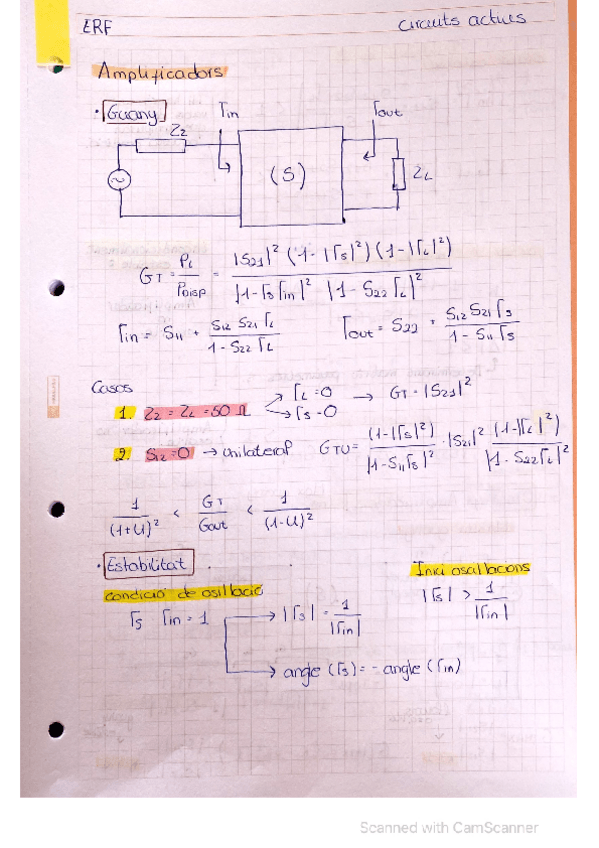 ERF
Circuits actius
Amplificadors
· Guany
Γin
Γout
Z2
(S)
ZL
GT = PL / PDISP = |S21|² (1-|Γs|²) (1-|ΓL|²) / |1-Γs Γin|² |1-S22 ΓL|²
Γin = S11 + S12 S21 ΓL / 1-S22 ΓL
Γout = S22 + S12 S21 Γs / 1-S11 Γs
Casos
1. Z2 = ZL = 50 Ω → ΓL = 0 → Γs = 0 → GT = |S21|²
2. S12 = 0 → unilateral GTU = (1-|Γs|²) / |1-S11Γs|² · |S21|² (1-|ΓL|²) / |1-S22ΓL|²
1 / (1+U)² < GT / < 1 / (1-U)²
· Estabilitat
Inici oscil·lacions
condició de osil·lació
|Γs| > 1 / |Γin|
Γs Γin = 1 → |Γs| = 1 / |Γin|
→ angle (Γs) = - angle (Γin)
Scanned with CamScanner